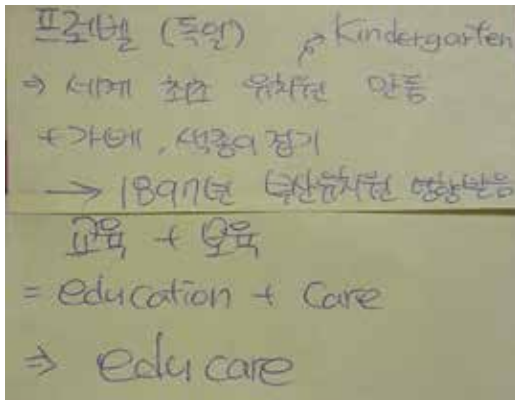 프로벨 (독일) ↗ Kindergarten
⇒ 세계 최초 유치원 만듦
+ 가베, 색종이 접기
→ 1897년 부산유치원 영향받음
교육 + 보육
= education + Care
⇒ edu care